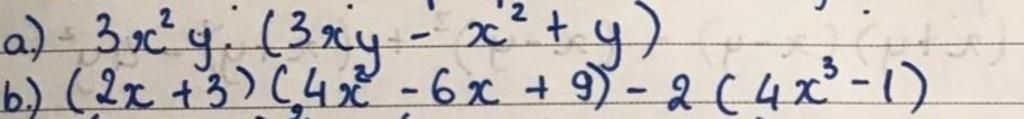 a.) 3x²y. (3xy - x² + y)
b.) (2x + 3) (4x² - 6x + 9) - 2 (4x³ - 1)